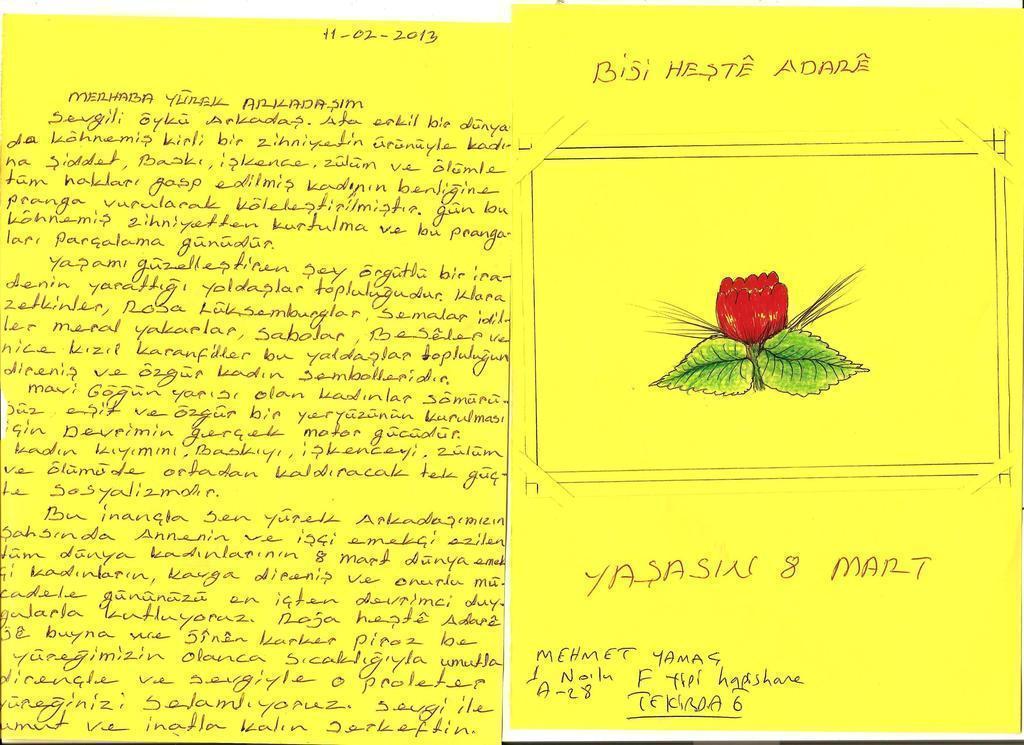 11-02-2013
MERHABA YÜREK ARKADAŞIM
Sevgili öykü Arkadaş. Ata erkil bir dünya-
da köhnemiş kirli bir zihniyetin ürünüyle kadı-
na şiddet, Baskı, işkence, zülüm ve ölümle
tüm hakları gasp edilmiş kadının benliğine
pranga vurularak köleleştirilmiştir. gün bu
köhnemiş zihniyetten kurtulma ve bu pranga-
ları Parçalama günüdür.
Yaşamı güzelleştiren şey örgütlü bir ira-
denin yarattığı yoldaşlar topluluğudur. Klara
zetkinler, Rosa Lüksemburglar, Semalar idil-
ler meral yakarlar, Sabolar, Besêler ve
nice kızıl karanfiller bu yoldaşlar topluluğun
direniş ve özgür kadın sembolleridir.
mavi Göğün yarısı olan kadınlar sömürü-
süz eşit ve özgür bir yeryüzünün kurulması
için Devrimin gerçek motor gücüdür.
kadın kıyımını, Baskıyı, işkenceyi, zülüm
ve ölümüde ortadan kaldıracak tek güç-
te sosyalizmdir.
Bu inançla sen yürek Arkadaşımızın
şahsında Annenin ve işçi emekçi ezilen
tüm dünya kadınlarının 8 mart dünya emek
çi kadınların, kavga direniş ve onurlu mü-
cadele gününüzü en içten devrimci duy-
gularla kutluyoruz. Roja heştê Adarê
jê buyna we jinên karker piroz be
yüreğimizin olanca sıcaklığıyla umutla
dirençle ve sevgiyle o proleter
yüreğinizi Selamlıyoruz. Sevgi ile
umut ve inatla kalın serkeftin.
BİJİ HEŞTÊ ADARÊ
YAŞASIN 8 MART
MEHMET YAMAÇ
1 Nolu F tipi hapishane
A-28
TEKİRDAĞ